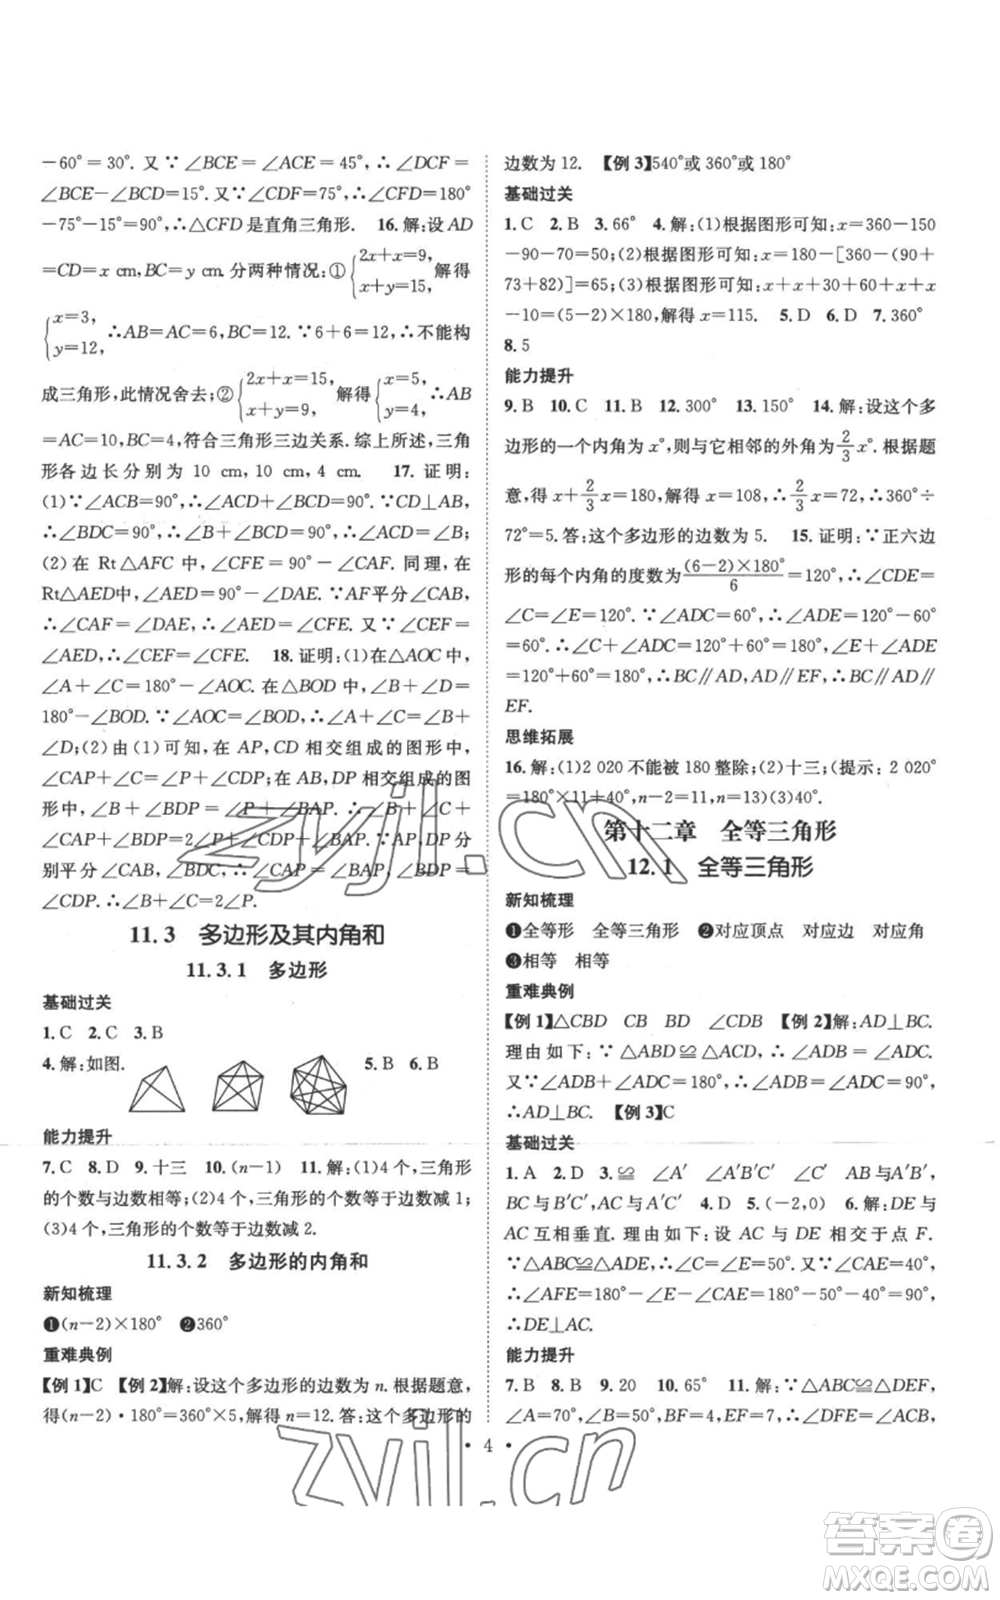 -60°=30°. 又∵∠BCE=∠ACE=45°,∴∠DCF=
∠BCE-∠BCD=15°. 又∵∠CDF=75°,∴∠CFD=180°
-75°-15°=90°,∴△CFD是直角三角形. 16.解:设AD
=CD=x cm,BC=y cm. 分两种情况:①{2x+x=9, x+y=15, 解得
{x=3, y=12, ∴AB=AC=6,BC=12. ∵6+6=12,∴不能构
成三角形,此情况舍去;②{2x+x=15, x+y=9, 解得{x=5, y=4, ∴AB
=AC=10,BC=4,符合三角形三边关系. 综上所述,三角
形各边长分别为 10 cm,10 cm,4 cm. 17. 证明:
(1)∵∠ACB=90°,∴∠ACD+∠BCD=90°. ∵CD⊥AB,
∴∠BDC=90°,∴∠B+∠BCD=90°,∴∠ACD=∠B;
(2)在 Rt△AFC 中,∠CFE=90°-∠CAF. 同理,在
Rt△AED中,∠AED=90°-∠DAE. ∵AF平分∠CAB,
∴∠CAF=∠DAE,∴∠AED=∠CFE. 又∵∠CEF=
∠AED,∴∠CEF=∠CFE. 18.证明:(1)在△AOC中,
∠A+∠C=180°-∠AOC. 在△BOD 中,∠B+∠D=
180°-∠BOD. ∵∠AOC=∠BOD,∴∠A+∠C=∠B+
∠D;(2)由(1)可知,在 AP,CD 相交组成的图形中,
∠CAP+∠C=∠P+∠CDP. ∴在AB,DP相交组成的图
形中,∠B+∠BDP=∠P+∠BAP. ∴∠C+∠CAP+
∠B+∠BDP=2∠P+∠CDP+∠BAP. ∵AP,DP 分
别平分∠CAB,∠BDC,∴∠CAP=∠BAP,∠BDP=
∠CDP. ∴∠C+∠B=2∠P.
11.3 多边形及其内角和
11.3.1 多边形
基础过关
1.C 2.C 3.B
4.解:如图. 5.B 6.B
能力提升
7.C 8.D 9.十三 10.(n-1) 11.解:(1)4个,三角形
的个数与边数相等;(2)4个,三角形的个数等于边数减1;
(3)4个,三角形的个数等于边数减2.
11.3.2 多边形的内角和
新知梳理
❶(n-2)×180° ❷360°
重难典例
【例1】C 【例2】解:设这个多边形的边数为n. 根据题意,
得(n-2)·180°=360°×5,解得n=12. 答:这个多边形的
边数为12. 【例3】540°或360°或180°
基础过关
1.C 2.B 3.66° 4.解:(1)根据图形可知:x=360-150
-90-70=50;(2)根据图形可知:x=180-[360-(90+
73+82)]=65;(3)根据图形可知:x+x+30+60+x+x
-10=(5-2)×180,解得x=115. 5.D 6.D 7.360°
8.5
能力提升
9.B 10.C 11.B 12.300° 13.150° 14.解:设这个多
边形的一个内角为x°,则与它相邻的外角为2/3x°. 根据题
意,得x+2/3x=180,解得x=108,∴2/3x=72,∴360°÷
72°=5. 答:这个多边形的边数为5. 15.证明:∵正六边
形的每个内角的度数为(6-2)×180°/6=120°,∴∠CDE=
∠C=∠E=120°. ∵∠ADC=60°,∴∠ADE=120°-60°
=60°. ∴∠C+∠ADC=120°+60°=180°,∠E+∠ADE
=120°+60°=180°. ∴BC∥AD,AD∥EF,∴BC∥AD∥
EF.
思维拓展
16.解:(1)2 020不能被180整除;(2)十三;(提示:2 020°
=180°×11+40°,n-2=11,n=13)(3)40°.
第十二章 全等三角形
12.1 全等三角形
新知梳理
❶全等形 全等三角形 ❷对应顶点 对应边 对应角
❸相等 相等
重难典例
【例1】△CBD CB BD ∠CDB 【例2】解:AD⊥BC.
理由如下:∵△ABD≌△ACD,∴∠ADB=∠ADC.
又∵∠ADB+∠ADC=180°,∴∠ADB=∠ADC=90°,
∴AD⊥BC. 【例3】C
基础过关
1.A 2.D 3.≌ ∠A′ ∠A′B′C′ ∠C′ AB与A′B′,
BC与B′C′,AC与A′C′ 4.D 5.(-2,0) 6.解:DE与
AC互相垂直. 理由如下:设 AC 与 DE 相交于点 F.
∵△ABC≌△ADE,∴∠C=∠E=50°. ∵∠CAE=40°,
∴∠AFE=180°-∠E-∠CAE=180°-50°-40°=90°,
∴DE⊥AC.
能力提升
7.B 8.B 9.20 10.65° 11.解:∵△ABC≌△DEF,
∠A=70°,∠B=50°,BF=4,EF=7,∴∠DFE=∠ACB,
·4·
zyjl.cn
zyjl.cn
答案圈
MXQE.COM